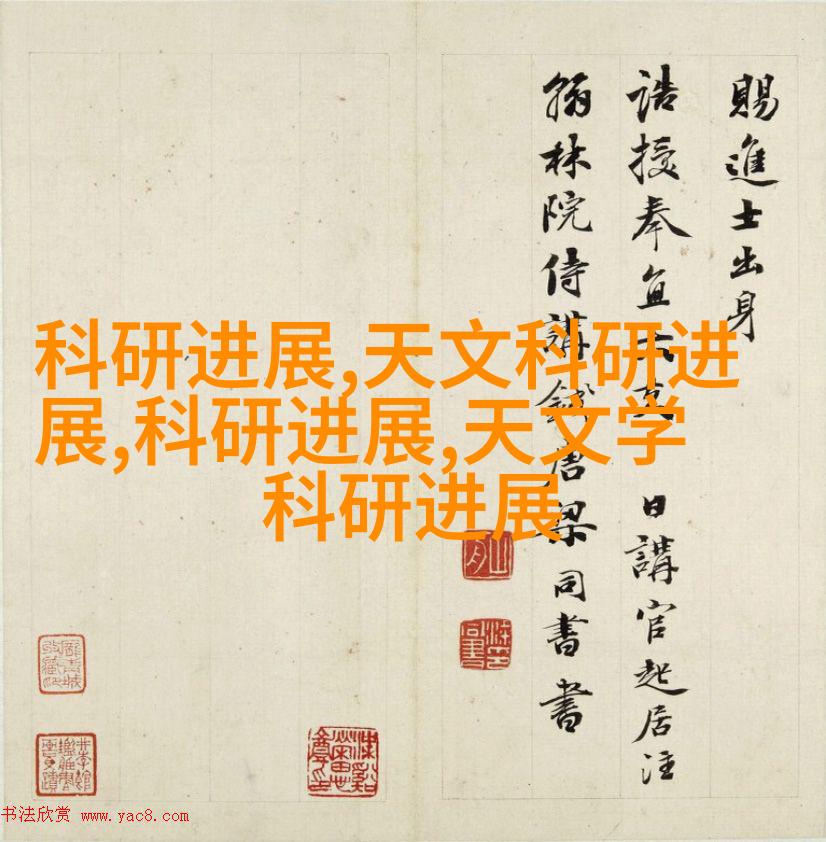 賜進士出身
誥授奉直大夫 日講官起居注
翰林院侍講錢唐梁同書書
科研进展,天文科研进
展,科研进展,天文学
科研进展
书法欣赏 www.yac8.com